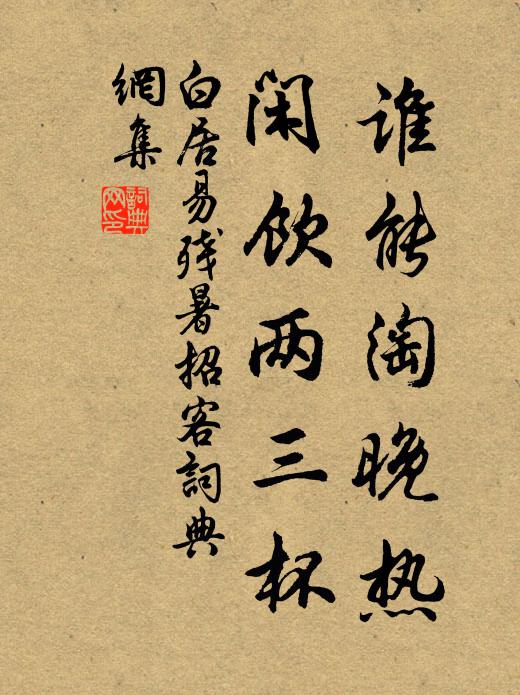 谁能淘晚热
闲饮两三杯
白居易残暑招客词典
网集
词典网印